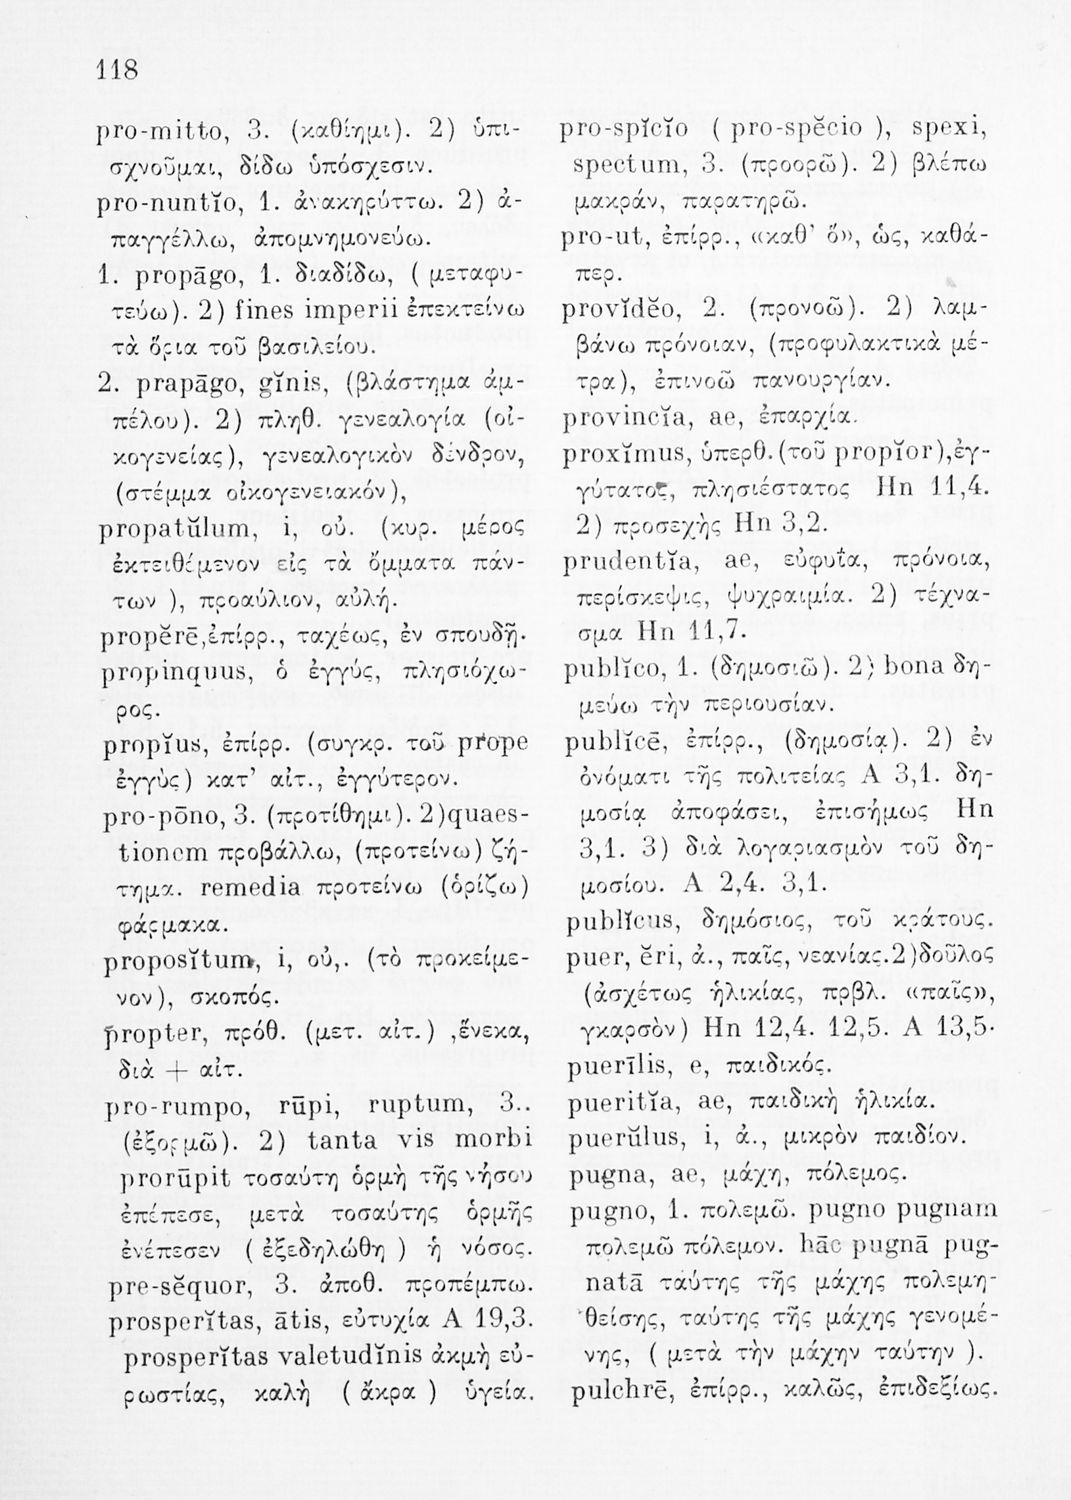 118
pro-mitto, 3. (καθίημι). 2) ὑπι-
σχνοῦμαι, δίδω ὑπόσχεσιν.
pro-nuntĭo, 1. ἀνακηρύττω. 2) ἀ-
παγγέλλω, ἀπομνημονεύω.
1. propāgo, 1. διαδίδω, ( μεταφυ-
τεύω). 2) fines imperii ἐπεκτείνω
τὰ ὅρια τοῦ βασιλείου.
2. prapāgo, gĭnis, (βλάστημα ἀμ-
πέλου). 2) πληθ. γενεαλογία (οἰ-
κογενείας), γενεαλογικὸν δένδρον,
(στέμμα οἰκογενειακόν),
propatŭlum, i, οὐ. (κυρ. μέρος
ἐκτειθέμενον εἰς τὰ ὄμματα πάν-
των ), προαύλιον, αὐλή.
propĕrē,ἐπίρρ., ταχέως, ἐν σπουδῇ.
propinquus, ὁ ἐγγύς, πλησιόχω-
ρος.
propĭus, ἐπίρρ. (συγκρ. τοῦ prope
ἐγγὺς) κατ’ αἰτ., ἐγγύτερον.
pro-pōno, 3. (προτίθημι). 2)quaes-
tionem προβάλλω, (προτείνω) ζή-
τημα. remedia προτείνω (ὁρίζω)
φάρμακα.
proposĭtum, i, οὐ,. (τὸ προκείμε-
νον), σκοπός.
propter, πρόθ. (μετ. αἰτ.) ,ἕνεκα,
διὰ + αἰτ.
pro-rumpo, rūpi, ruptum, 3..
(ἐξορμῶ). 2) tanta vis morbi
prorūpit τοσαύτη ὁρμὴ τῆς νήσου
ἐπέπεσε, μετὰ τοσαύτης ὁρμῆς
ἐνέπεσεν ( ἐξεδηλώθη ) ἡ νόσος.
pre-sĕquor, 3. ἀποθ. προπέμπω.
prosperĭtas, ātis, εὐτυχία A 19,3.
prosperĭtas valetudĭnis ἀκμὴ εὐ-
ρωστίας, καλὴ ( ἄκρα ) ὑγεία.
pro-spĭcĭo ( pro-spĕcio ), spexi,
spectum, 3. (προορῶ). 2) βλέπω
μακράν, παρατηρῶ.
pro-ut, ἐπίρρ., «καθ’ ὅ», ὡς, καθά-
περ.
provĭdĕo, 2. (προνοῶ). 2) λαμ-
βάνω πρόνοιαν, (προφυλακτικὰ μέ-
τρα), ἐπινοῶ πανουργίαν.
provincĭa, ae, ἐπαρχία.
proxĭmus, ὑπερθ. (τοῦ propĭor),ἐγ-
γύτατος, πλησιέστατος Hn 11,4.
2) προσεχὴς Hn 3,2.
prudentĭa, ae, εὐφυΐα, πρόνοια,
περίσκεψις, ψυχραιμία. 2) τέχνα-
σμα Hn 11,7.
publĭco, 1. (δημοσιῶ). 2) bona δη-
μεύω τὴν περιουσίαν.
publĭcē, ἐπίρρ., (δημοσίᾳ). 2) ἐν
ὀνόματι τῆς πολιτείας A 3,1. δη-
μοσίᾳ ἀποφάσει, ἐπισήμως Hn
3,1. 3) διὰ λογαριασμὸν τοῦ δη-
μοσίου. A 2,4. 3,1.
publĭcus, δημόσιος, τοῦ κράτους.
puer, ĕri, ἀ., παῖς, νεανίας.2)δοῦλος
(ἀσχέτως ἡλικίας, πρβλ. «παῖς»,
γκαρσὸν) Hn 12,4. 12,5. A 13,5.
puerīlis, e, παιδικός.
pueritĭa, ae, παιδικὴ ἡλικία.
puerŭlus, i, ἀ., μικρὸν παιδίον.
pugna, ae, μάχη, πόλεμος.
pugno, 1. πολεμῶ. pugno pugnam
πολεμῶ πόλεμον. hāc pugnā pug-
natā ταύτης τῆς μάχης πολεμη-
θείσης, ταύτης τῆς μάχης γενομέ-
νης, ( μετὰ τὴν μάχην ταύτην ).
pulchrē, ἐπίρρ., καλῶς, ἐπιδεξίως.